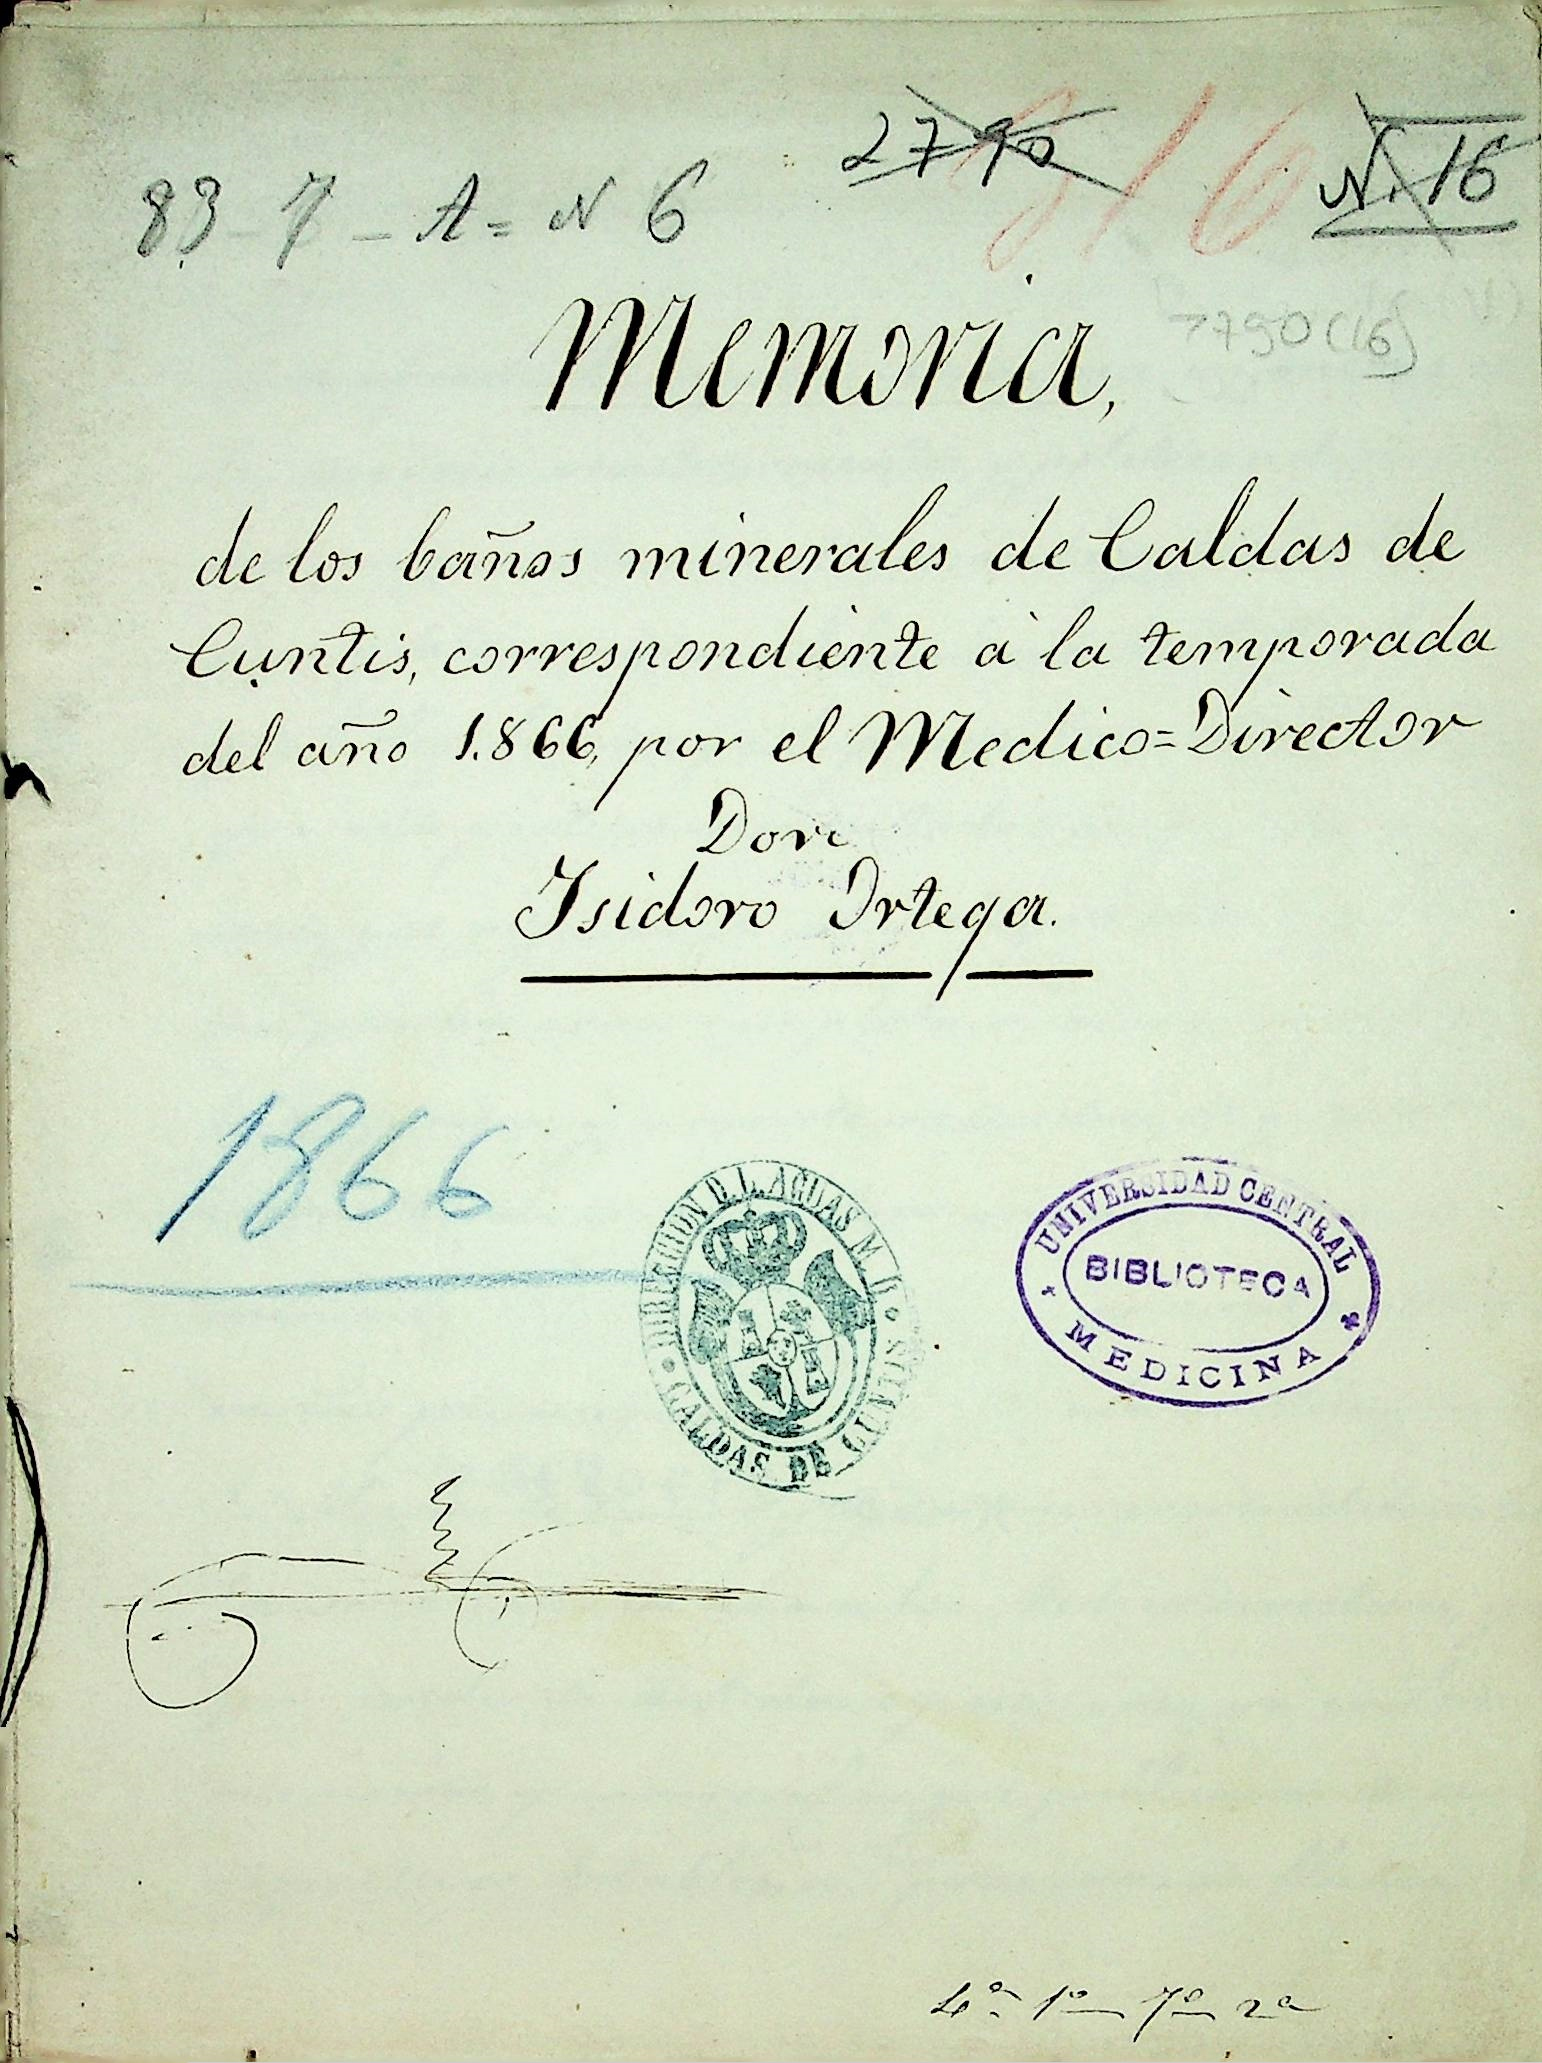 2790
N. 16
83-7-A=N 6
816
Memoria,
7790(16)
de los baños minerales de Caldas de
Cuntis, correspondiente à la temporada
del año 1.866, por el Medico=Director
Don
Isidoro Ortega.
1866
DIRECCION D L. AGUAS M. D.
CALDAS DE CUNTIS
UNIVERSIDAD CENTRAL
BIBLIOTECA
MEDICINA
4ª 1ª 7ª 2ª